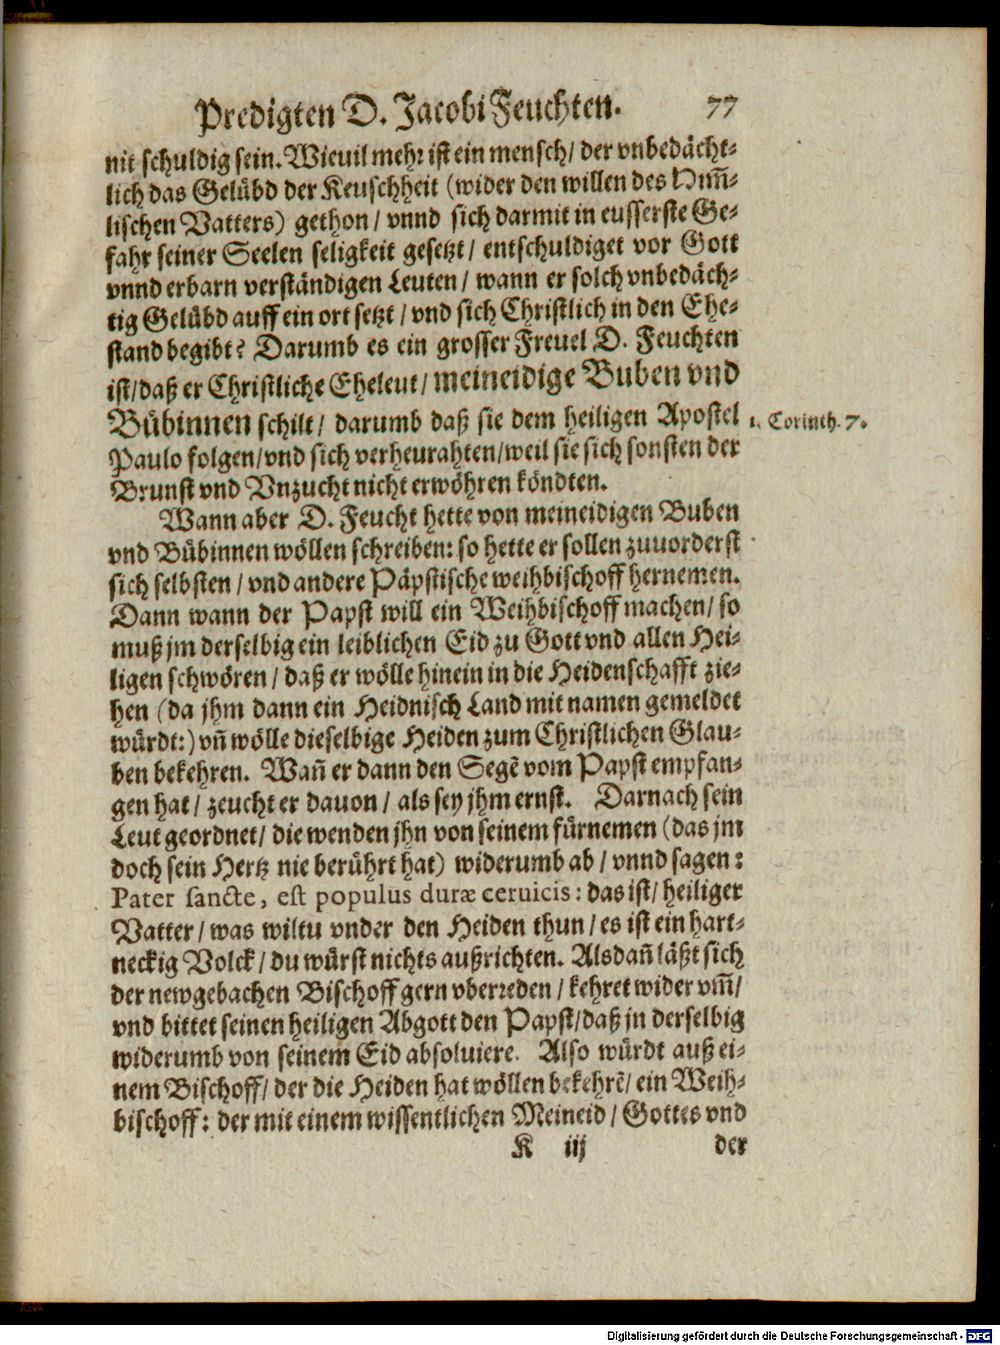 Predigten D. Jacobi Feuchten. 77
nit schuldig sein. Wieuil mehr ist ein mensch/ der vnbedächt-
lich das Gelübd der Keuschheit (wider den willen des Him̃-
lischen Vatters) gethon/ vnnd sich darmit in eusserste Ge-
fahr seiner Seelen seligkeit gesetzt/ entschuldiget vor Gott
vnnd erbarn verständigen Leuten/ wann er solch vnbedäch-
tig Gelübd auff ein ort setzt/ vnd sich Christlich in den Ehe-
stand begibt? Darumb es ein grosser Freuel D. Feuchten
ist/ daß er Christliche Eheleut/ meineidige Buben vnd
Bübinnen schilt/ darumb daß sie dem heiligen Apostel
1. Corinth. 7.
Paulo folgen/ vnd sich verheurahten/ weil sie sich sonsten der
Brunst vnd Vnzucht nicht erwöhren köndten.
Wann aber D. Feucht hette von meineidigen Buben
vnd Bübinnen wöllen schreiben: so hette er sollen zuuorderst
sich selbsten/ vnd andere Päpstische weihbischoff hernemen.
Dann wann der Papst will ein Weihbischoff machen/ so
muß jm derselbig ein leiblichen Eid zu Gott vnd allen Hei-
ligen schwören/ daß er wölle hinein in die Heidenschafft zie-
hen (da jhm dann ein Heidnisch Land mit namen gemeldet
würdt:) vñ wölle dieselbige Heiden zum Christlichen Glau-
ben bekehren. Wañ er dann den Segẽ vom Papst empfan-
gen hat/ zeucht er dauon/ als sey jhm ernst. Darnach sein
Leut geordnet/ die wenden jhn von seinem fürnemen (das jm
doch sein Hertz nie berührt hat) widerumb ab/ vnnd sagen:
Pater sancte, est populus duræ ceruicis: das ist/ heiliger
Vatter/ was wiltu vnder den Heiden thun/ es ist ein hart-
neckig Volck/ du würst nichts außrichten. Alsdañ läßt sich
der newgebachen Bischoff gern vberreden/ kehret wider vm̃/
vnd bittet seinen heiligen Abgott den Papst/ daß jn derselbig
widerumb von seinem Eid absoluiere. Also würdt auß ei-
nem Bischoff/ der die Heiden hat wöllen bekehrẽ/ ein Weih-
bischoff: der mit einem wissentlichen Meineid/ Gottes vnd
K iij der
Digitalisierung gefördert durch die Deutsche Forschungsgemeinschaft - DFG